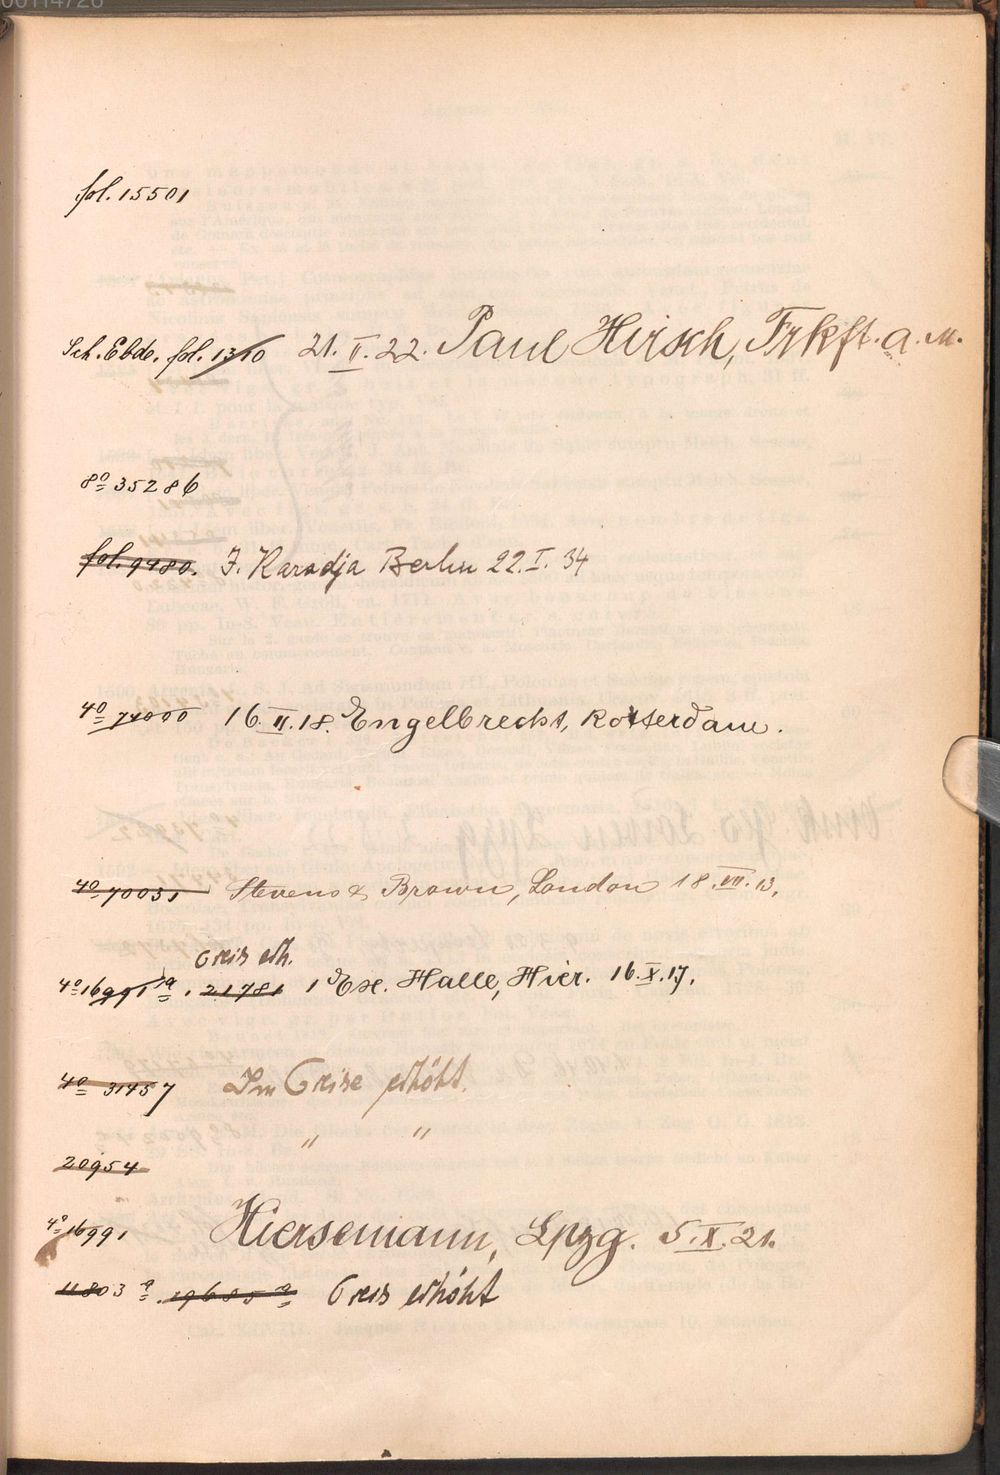 fol. 15501
Sch. Ebde. fol. 1310 21. II. 22. Paul Hirsch, Frkft. a. M.
8º 35286
fol. 9980. J. Karadja Berlin 22. I. 34
4º 74000 16. II. 18. Engelbrecht, Rotterdam.
4º 70031 Stevens & Brown, London 18. VII. 13.
Preis erh.
4º 16991 a. 21781 1 Ex. Halle, Hier. 16. X. 17.
4º 31457 Im Preise erhöht.
" "
20954
4º 16991 Hiersemann, Lpzg. 5. X. 21.
11803 a. 19685 a Preis erhöht